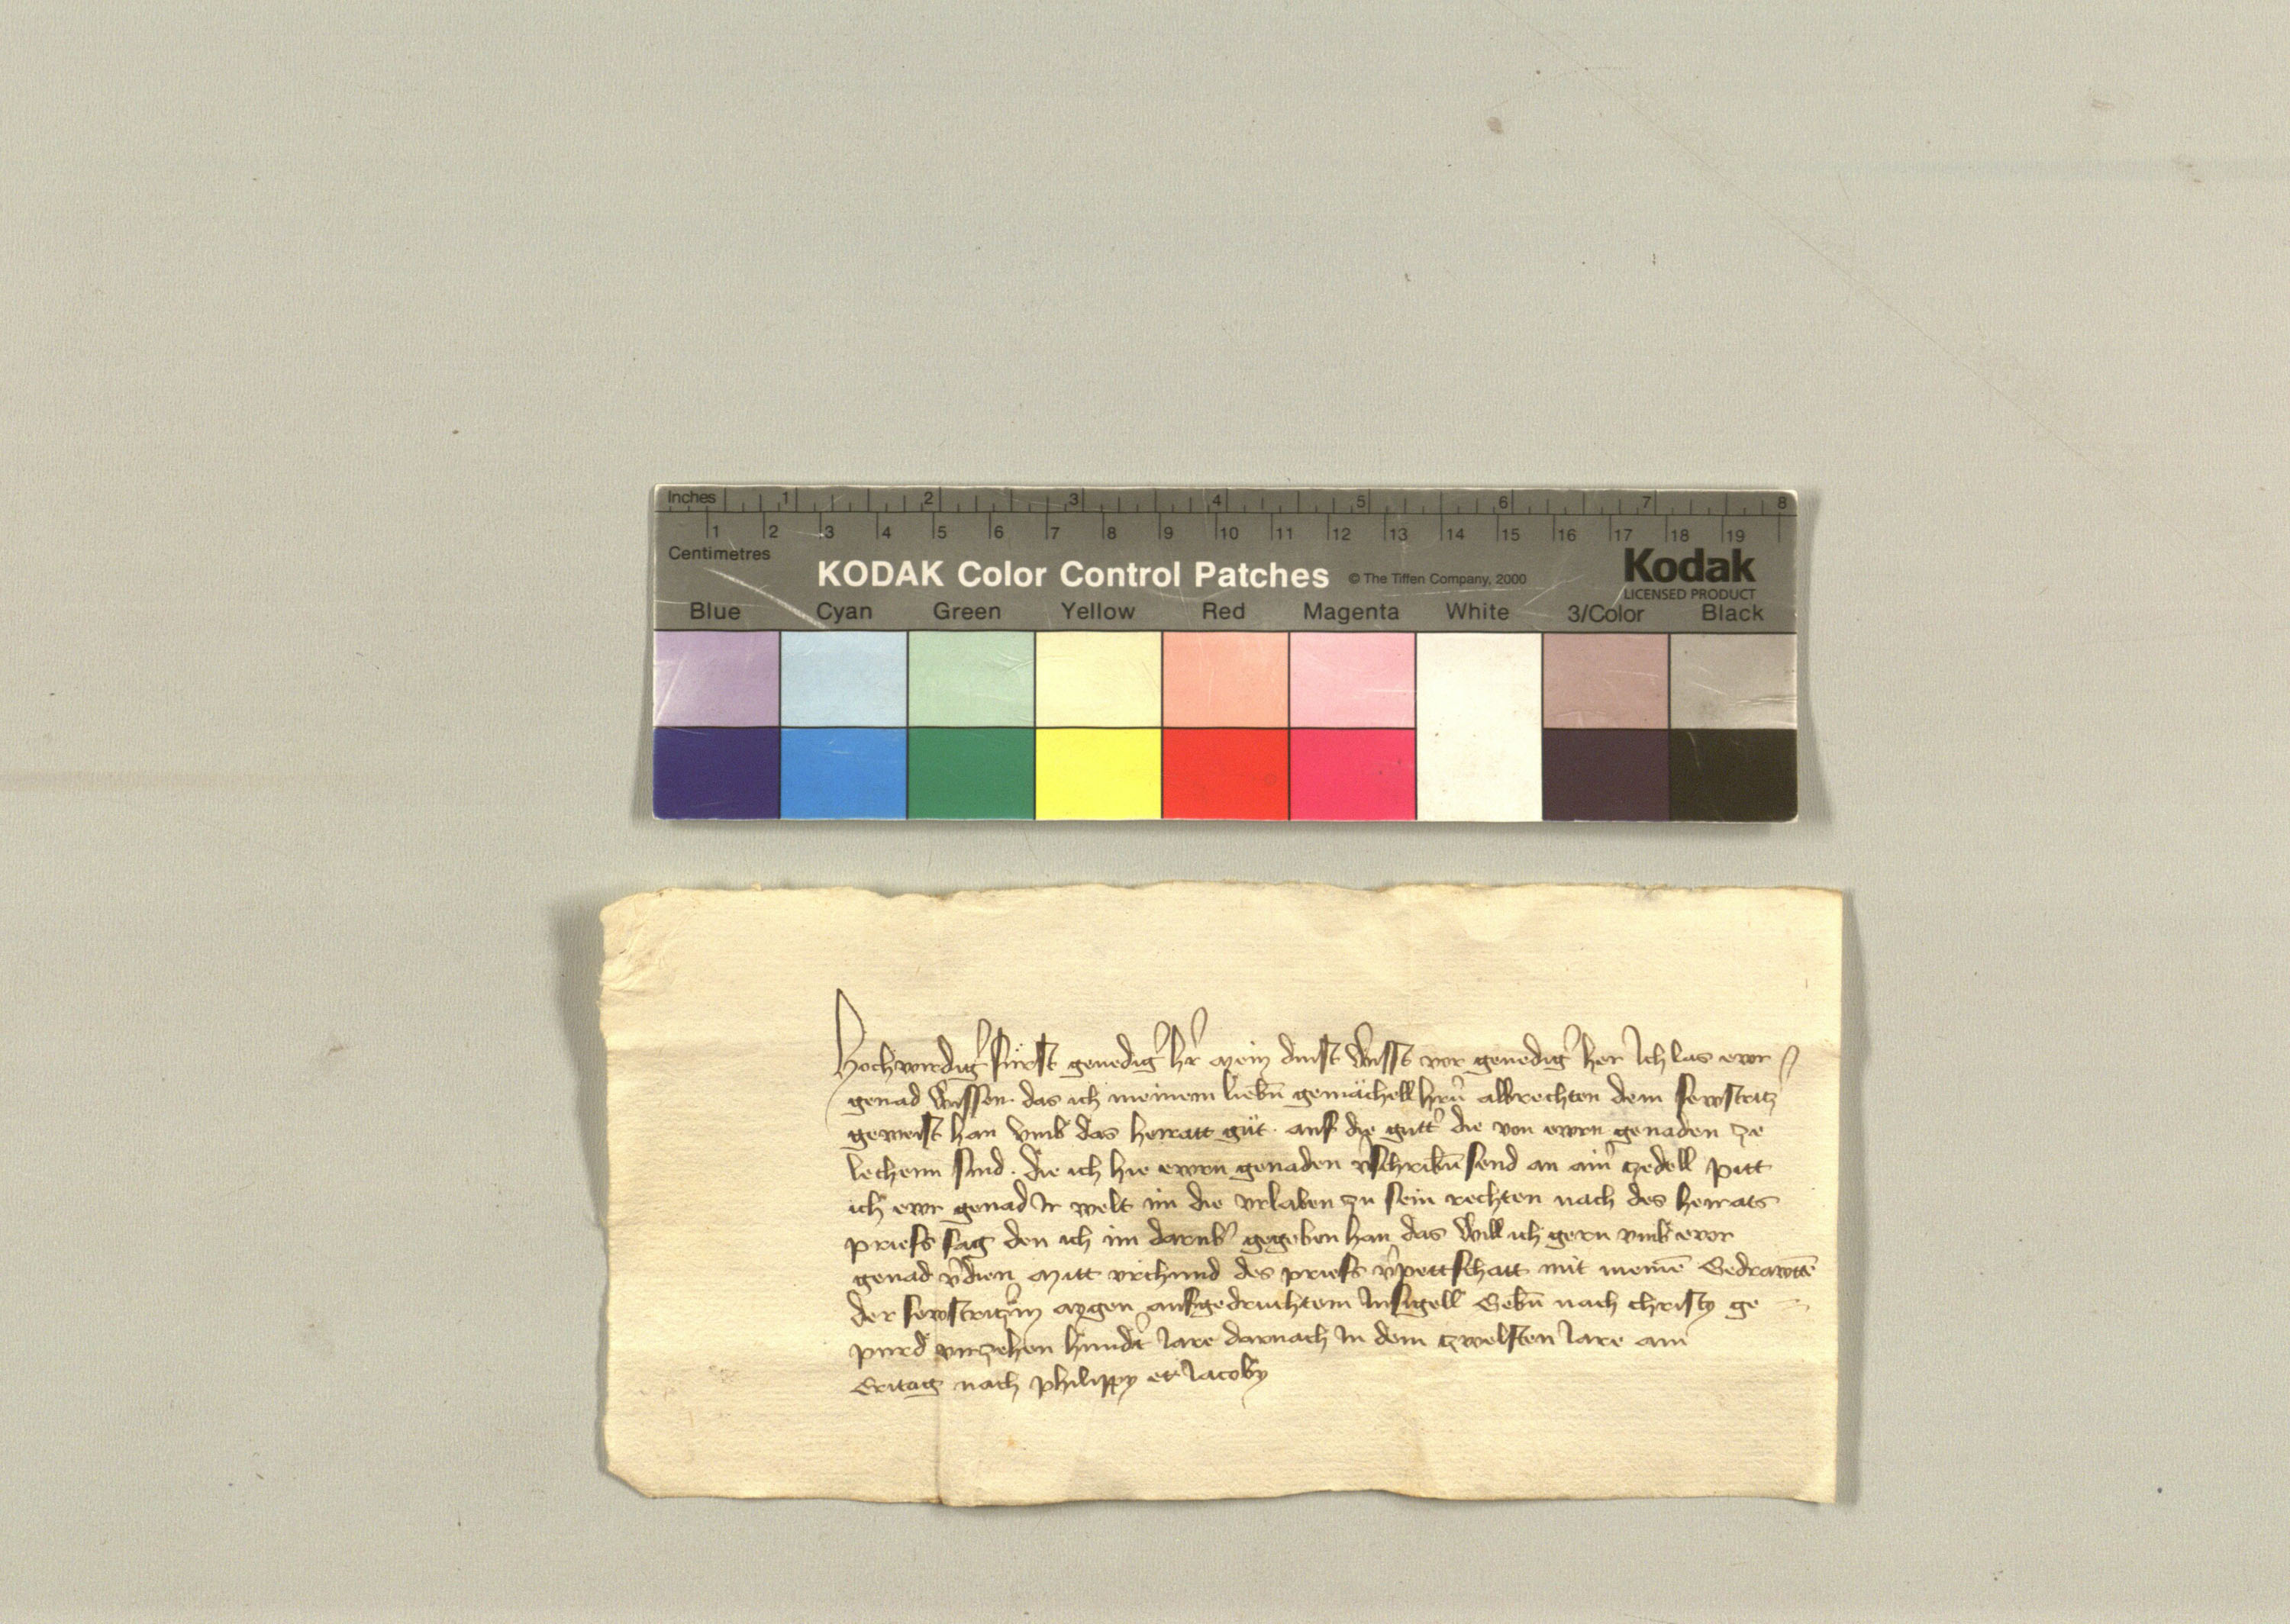 Inches 1 2 3 4 5 6 7 8
1 2 3 4 5 6 7 8 9 10 11 12 13 14 15 16 17 18 19
Centimetres
KODAK Color Control Patches © The Tiffen Company, 2000 Kodak
LICENSED PRODUCT
Blue Cyan Green Yellow Red Magenta White 3/Color Black
Hochwirdig̉ fürst genedig̉ hr̉ mein dinst wisst vor genedig̉ her Ich las ewr
genad wissen das ich meinem liebn̄ gemächell hrn̄ albrechten dem
geweist han vmb das heiratt güt. auf die gütt̉ die von ewrn genaden ze
lechenn sind. die ich hie ewrn genaden v̉schribn̄ send an ain̉ zedell pitt
ich ewr genad Ir welt im die vrlaben zu sein rechten nach des heirats
priefs sag den ich im darub̉ gegeben han das will ich gern vmb ewr
genad v̉dien Mitt vrchund des priefs v̉pettschatt mit meinē
der aygen aufgedruchtem Insigell Gebn̄ nach christy ge
purd virzehen hundt̉ Iare darnach In dem zwelften Iare am
Eritag nach philippy et Iacoby